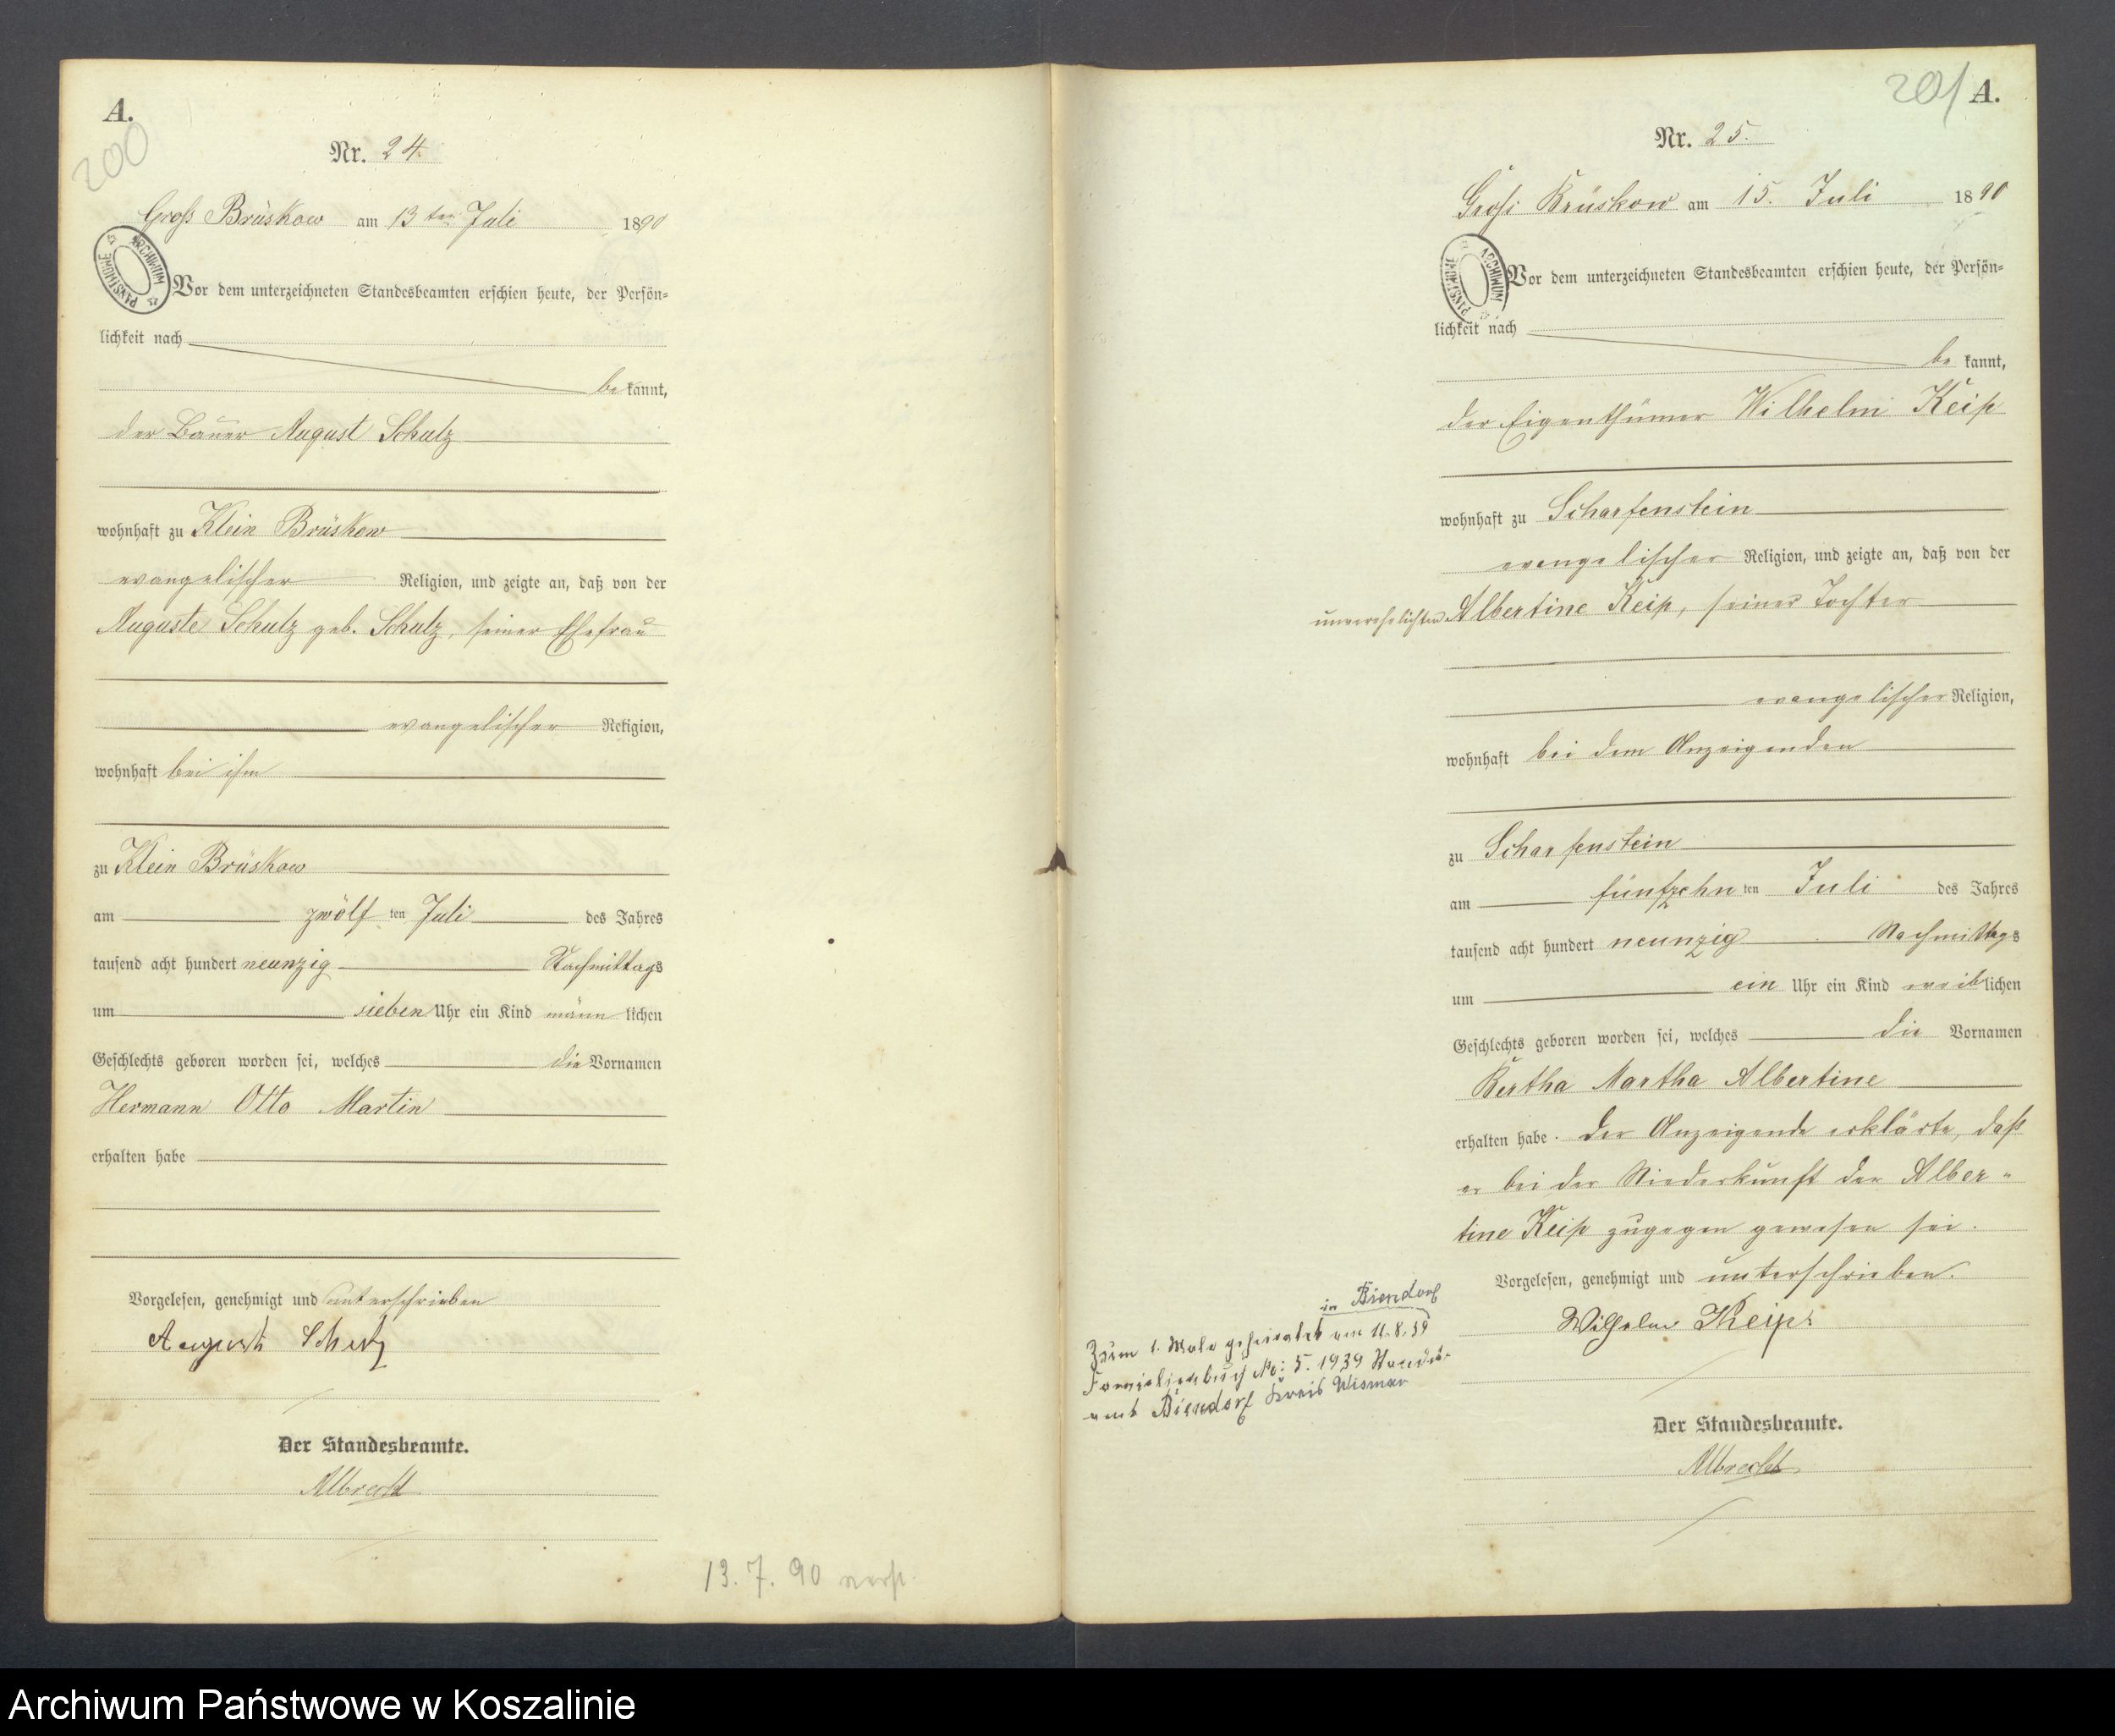 A.
200
Nr. 24.
Groß Brüskow am 13ten Juli 1890
ARCHIWUM PAŃSTWOWE
Vor dem unterzeichneten Standesbeamten erschien heute, der Persön-
lichkeit nach
bekannt,
der Bauer August Schulz
wohnhaft zu Klein Brüskow
evangelischer Religion, und zeigte an, daß von der
Auguste Schulz geb. Schulz, seiner Ehefrau
evangelischer Religion,
wohnhaft bei ihm
zu Klein Brüskow
am zwölf ten Juli des Jahres
tausend acht hundert neunzig Nachmittags
um sieben Uhr ein Kind männlichen
Geschlechts geboren worden sei, welches die Vornamen
Hermann Otto Martin
erhalten habe
Vorgelesen, genehmigt und unterschrieben
August Schulz
Der Standesbeamte.
Albrecht
13. 7. 90 verst.
201
A.
Nr. 25.
Groß Brüskow am 15. Juli 1890
ARCHIWUM PAŃSTWOWE
Vor dem unterzeichneten Standesbeamten erschien heute, der Persön-
lichkeit nach
bekannt,
der Eigenthümer Wilhelm Keip
wohnhaft zu Scharfenstein
evangelischer Religion, und zeigte an, daß von der
unverehelichten Albertine Keip, seiner Tochter
evangelischer Religion,
wohnhaft bei dem Anzeigenden
zu Scharfenstein
am fünfzehn ten Juli des Jahres
tausend acht hundert neunzig Nachmittags
um ein Uhr ein Kind weiblichen
Geschlechts geboren worden sei, welches die Vornamen
Bertha Martha Albertine
erhalten habe. Der Anzeigende erklärte, daß
er bei der Niederkunft der Alber-
tine Keip zugegen gewesen sei.
Vorgelesen, genehmigt und unterschrieben.
Wilhelm Keip
Der Standesbeamte.
Albrecht
in Biendorf
Zum 1. Male geheiratet am 11.8.39
Familienbuch No: 5. 1939 Standes-
amt Biendorf Kreis Wismar
Archiwum Państwowe w Koszalinie